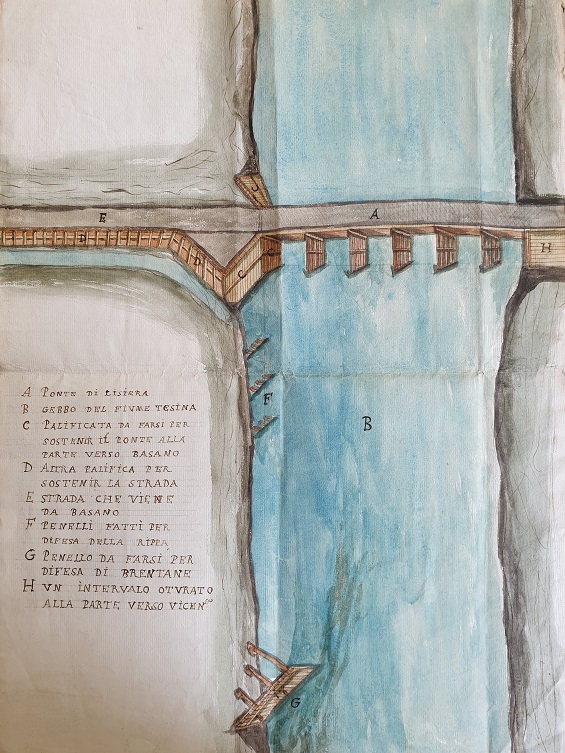 J
E
A
D
D
C
H
F
B
G
A PONTE DI LISIERA
B GEBBO DEL FIVME TESINA
C PALIFICATA DA FARSI PER
SOSTENIR IL PONTE ALLA
PARTE VERSO BASANO
D ALTRA PALIFICA PER
SOSTENIR LA STRADA
E STRADA CHE VIENE
DA BASANO
F PENELLI FATTI PER
DIFESA DELLA RIPPA
G PENELLO DA FARSI PER
DIFESA DI BRENTANE
H VN INTERVALO OTVRATO
ALLA PARTE VERSO